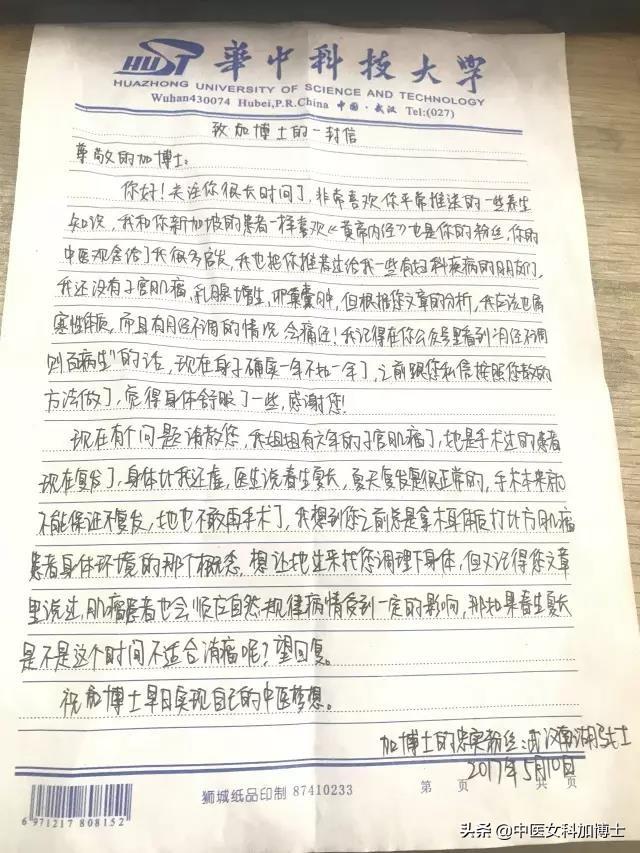 HUST 華中科技大学
HUAZHONG UNIVERSITY OF SCIENCE AND TECHNOLOGY
Wuhan430074 Hubei,P.R.China 中国·武汉 Tel:(027)
致加博士的一封信
尊敬的加博士:
你好!关注你很长时间了,非常喜欢你平常推送的一些养生
知识,我和你新加坡的患者一样喜欢《黄帝内经》也是你的粉丝,你的
中医观念给了我很多启发,我也把你推荐过给我一些有妇科疾病的朋友们,
我还没有子宫肌瘤,乳腺增生,卵巢囊肿,但根据您文章的分析,我应该也属
寒性体质,而且有月经不调的情况,会痛经!我记得在你公众号里看到"月经不调
则百病生"的话,现在身子确实一年不如一年了,之前跟您私信按照您教的
方法做了,觉得身体舒服了一些,感谢您!
现在有个问题请教您,我姐姐有六年的子宫肌瘤了,她是手术过的患者
现在复发了,身体比我还虚,医生说春生夏长,夏天复发是很正常的,手术本来就
不能保证不复发,她也不敢再手术了,我想到您之前总是拿木耳体质打比方肌瘤
患者身体环境的那个概念,想让她过来找您调理下身体,但又记得您文章
里说过,肌瘤患者也会顺应自然规律病情受到一定的影响,那如果春生夏长
是不是这个时间不适合消瘤呢?望回复。
祝加博士早日实现自己的中医梦想。
加博士的忠实粉丝:武汉南湖 女士
2017年5月10日
狮城纸品印制 87410233 第 页 共 页
6 971217 808152
头条 @中医女科加博士